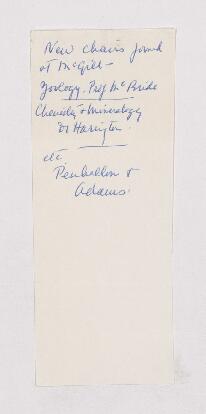 New chairs found
at McGill -
Zoology. Prof McBride
Chemistry & Mineralogy
Dr Harington.
etc
Penhallon &
Adams.